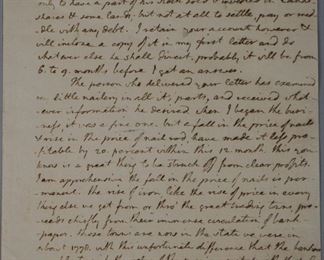 only to have a part of his stock sold & invested in lands
shares & some land, but not at all to settle, pay or med
dle with any debt. I retain your account however &
will inclose a copy of it in my first letter and do
whatever else he shall direct. probably it will be from
6. to 9. months before I get an answer.
The person who delivered your letter has examined
little nailery in all it's parts, and received what
ever information he desired. when I began the busi-
ness it was a fine one. but a fall in the price of nails
& rise in the price of nailrod have made it less pro-
fitable by 20 percent within this 12. month. this you
know is a great thing to be struck off from clear profits.
I am apprehensive the fall in the price of nails is per-
manent. the rise of iron, like the rise of price in every
thing else we get from or thro' the great trading towns, pro-
ceeds chiefly from their immense circulation of bank
paper. those towns are now in the state we were in
about 1778. with this unfortunate difference that the